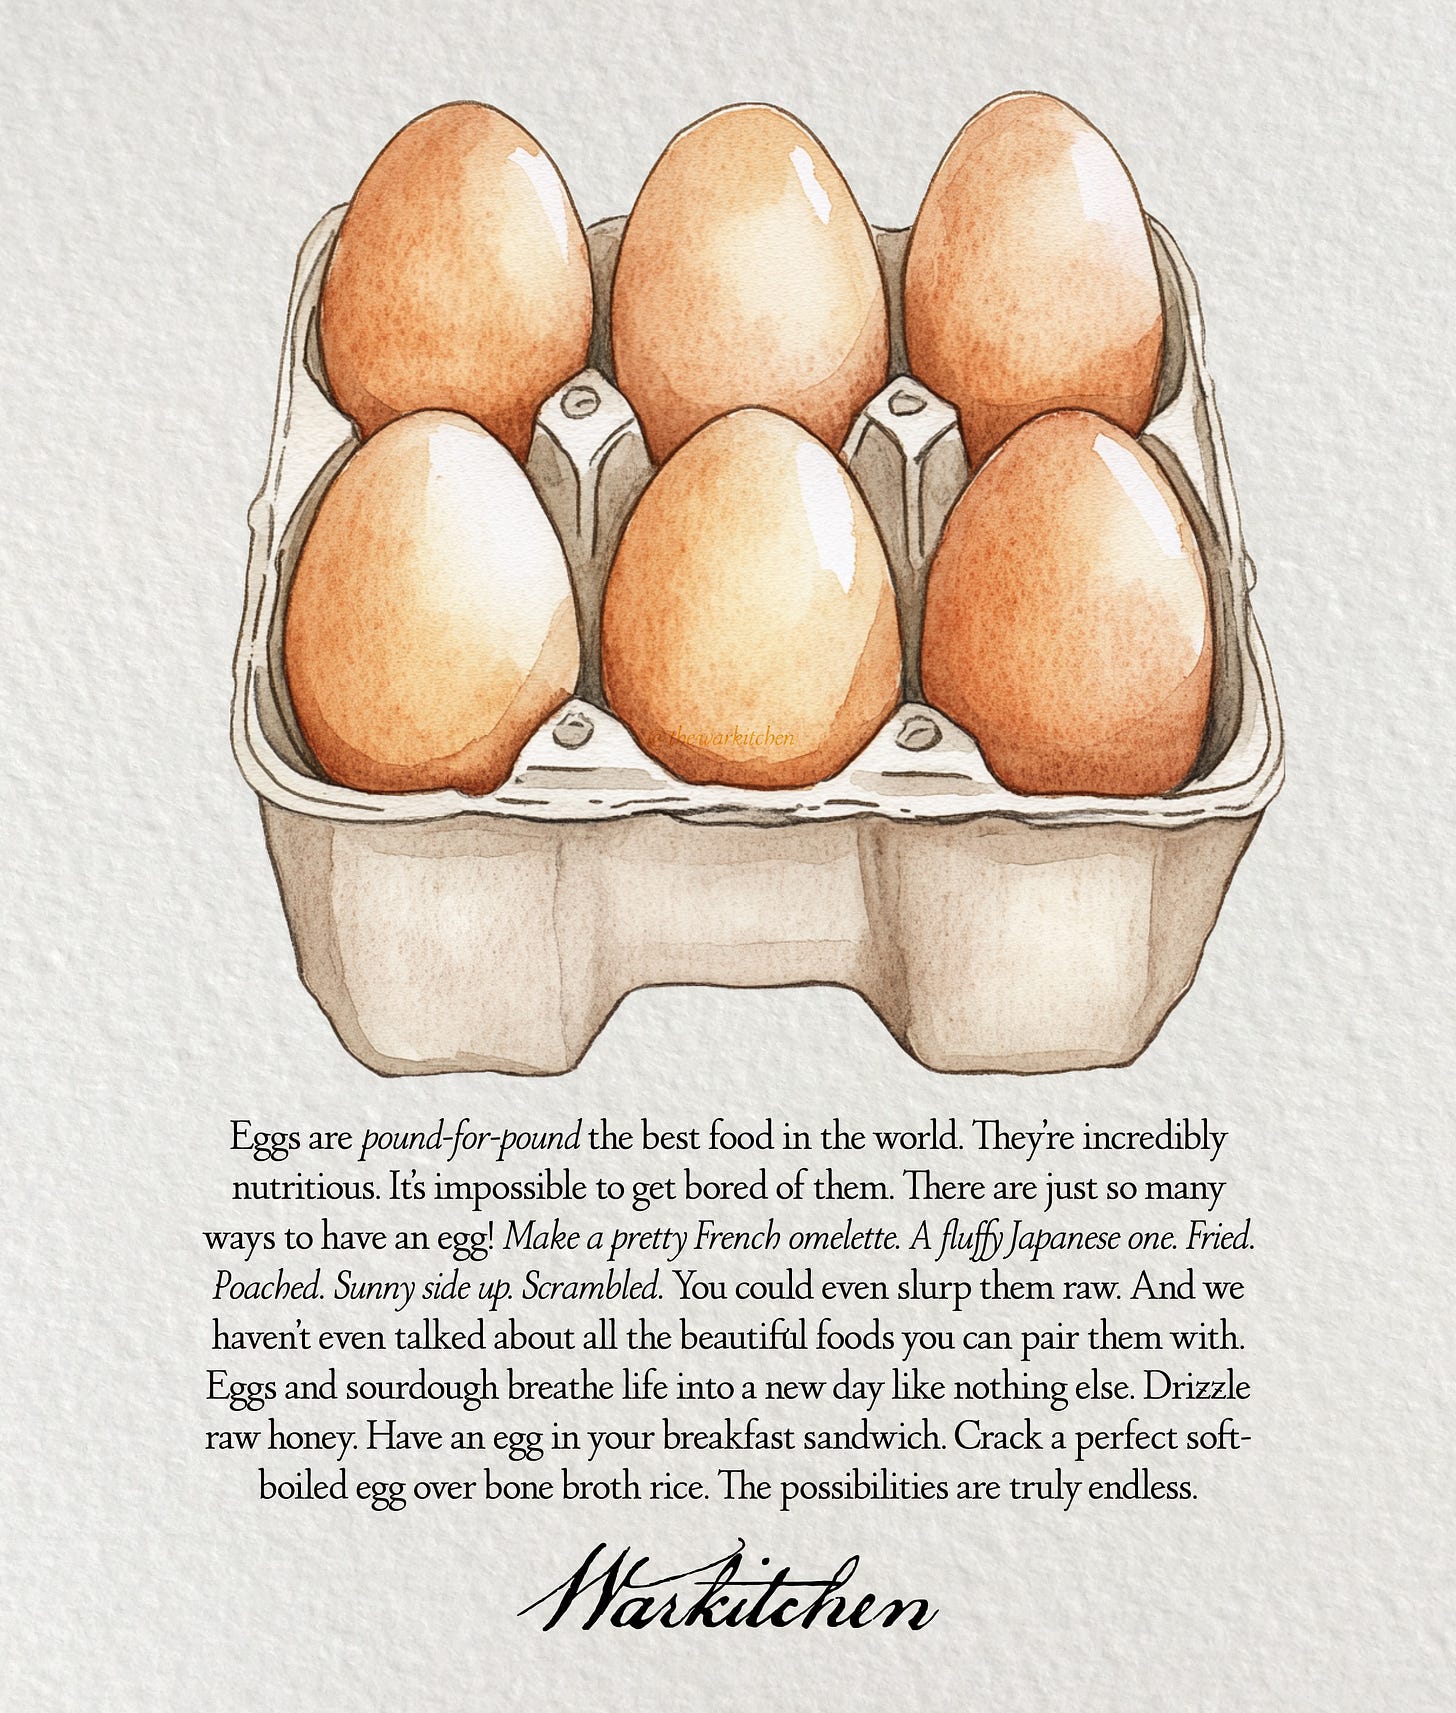 @thewarkitchen
Eggs are pound-for-pound the best food in the world. They’re incredibly
nutritious. It’s impossible to get bored of them. There are just so many
ways to have an egg! Make a pretty French omelette. A fluffy Japanese one. Fried.
Poached. Sunny side up. Scrambled. You could even slurp them raw. And we
haven’t even talked about all the beautiful foods you can pair them with.
Eggs and sourdough breathe life into a new day like nothing else. Drizzle
raw honey. Have an egg in your breakfast sandwich. Crack a perfect soft-
boiled egg over bone broth rice. The possibilities are truly endless.
Warkitchen